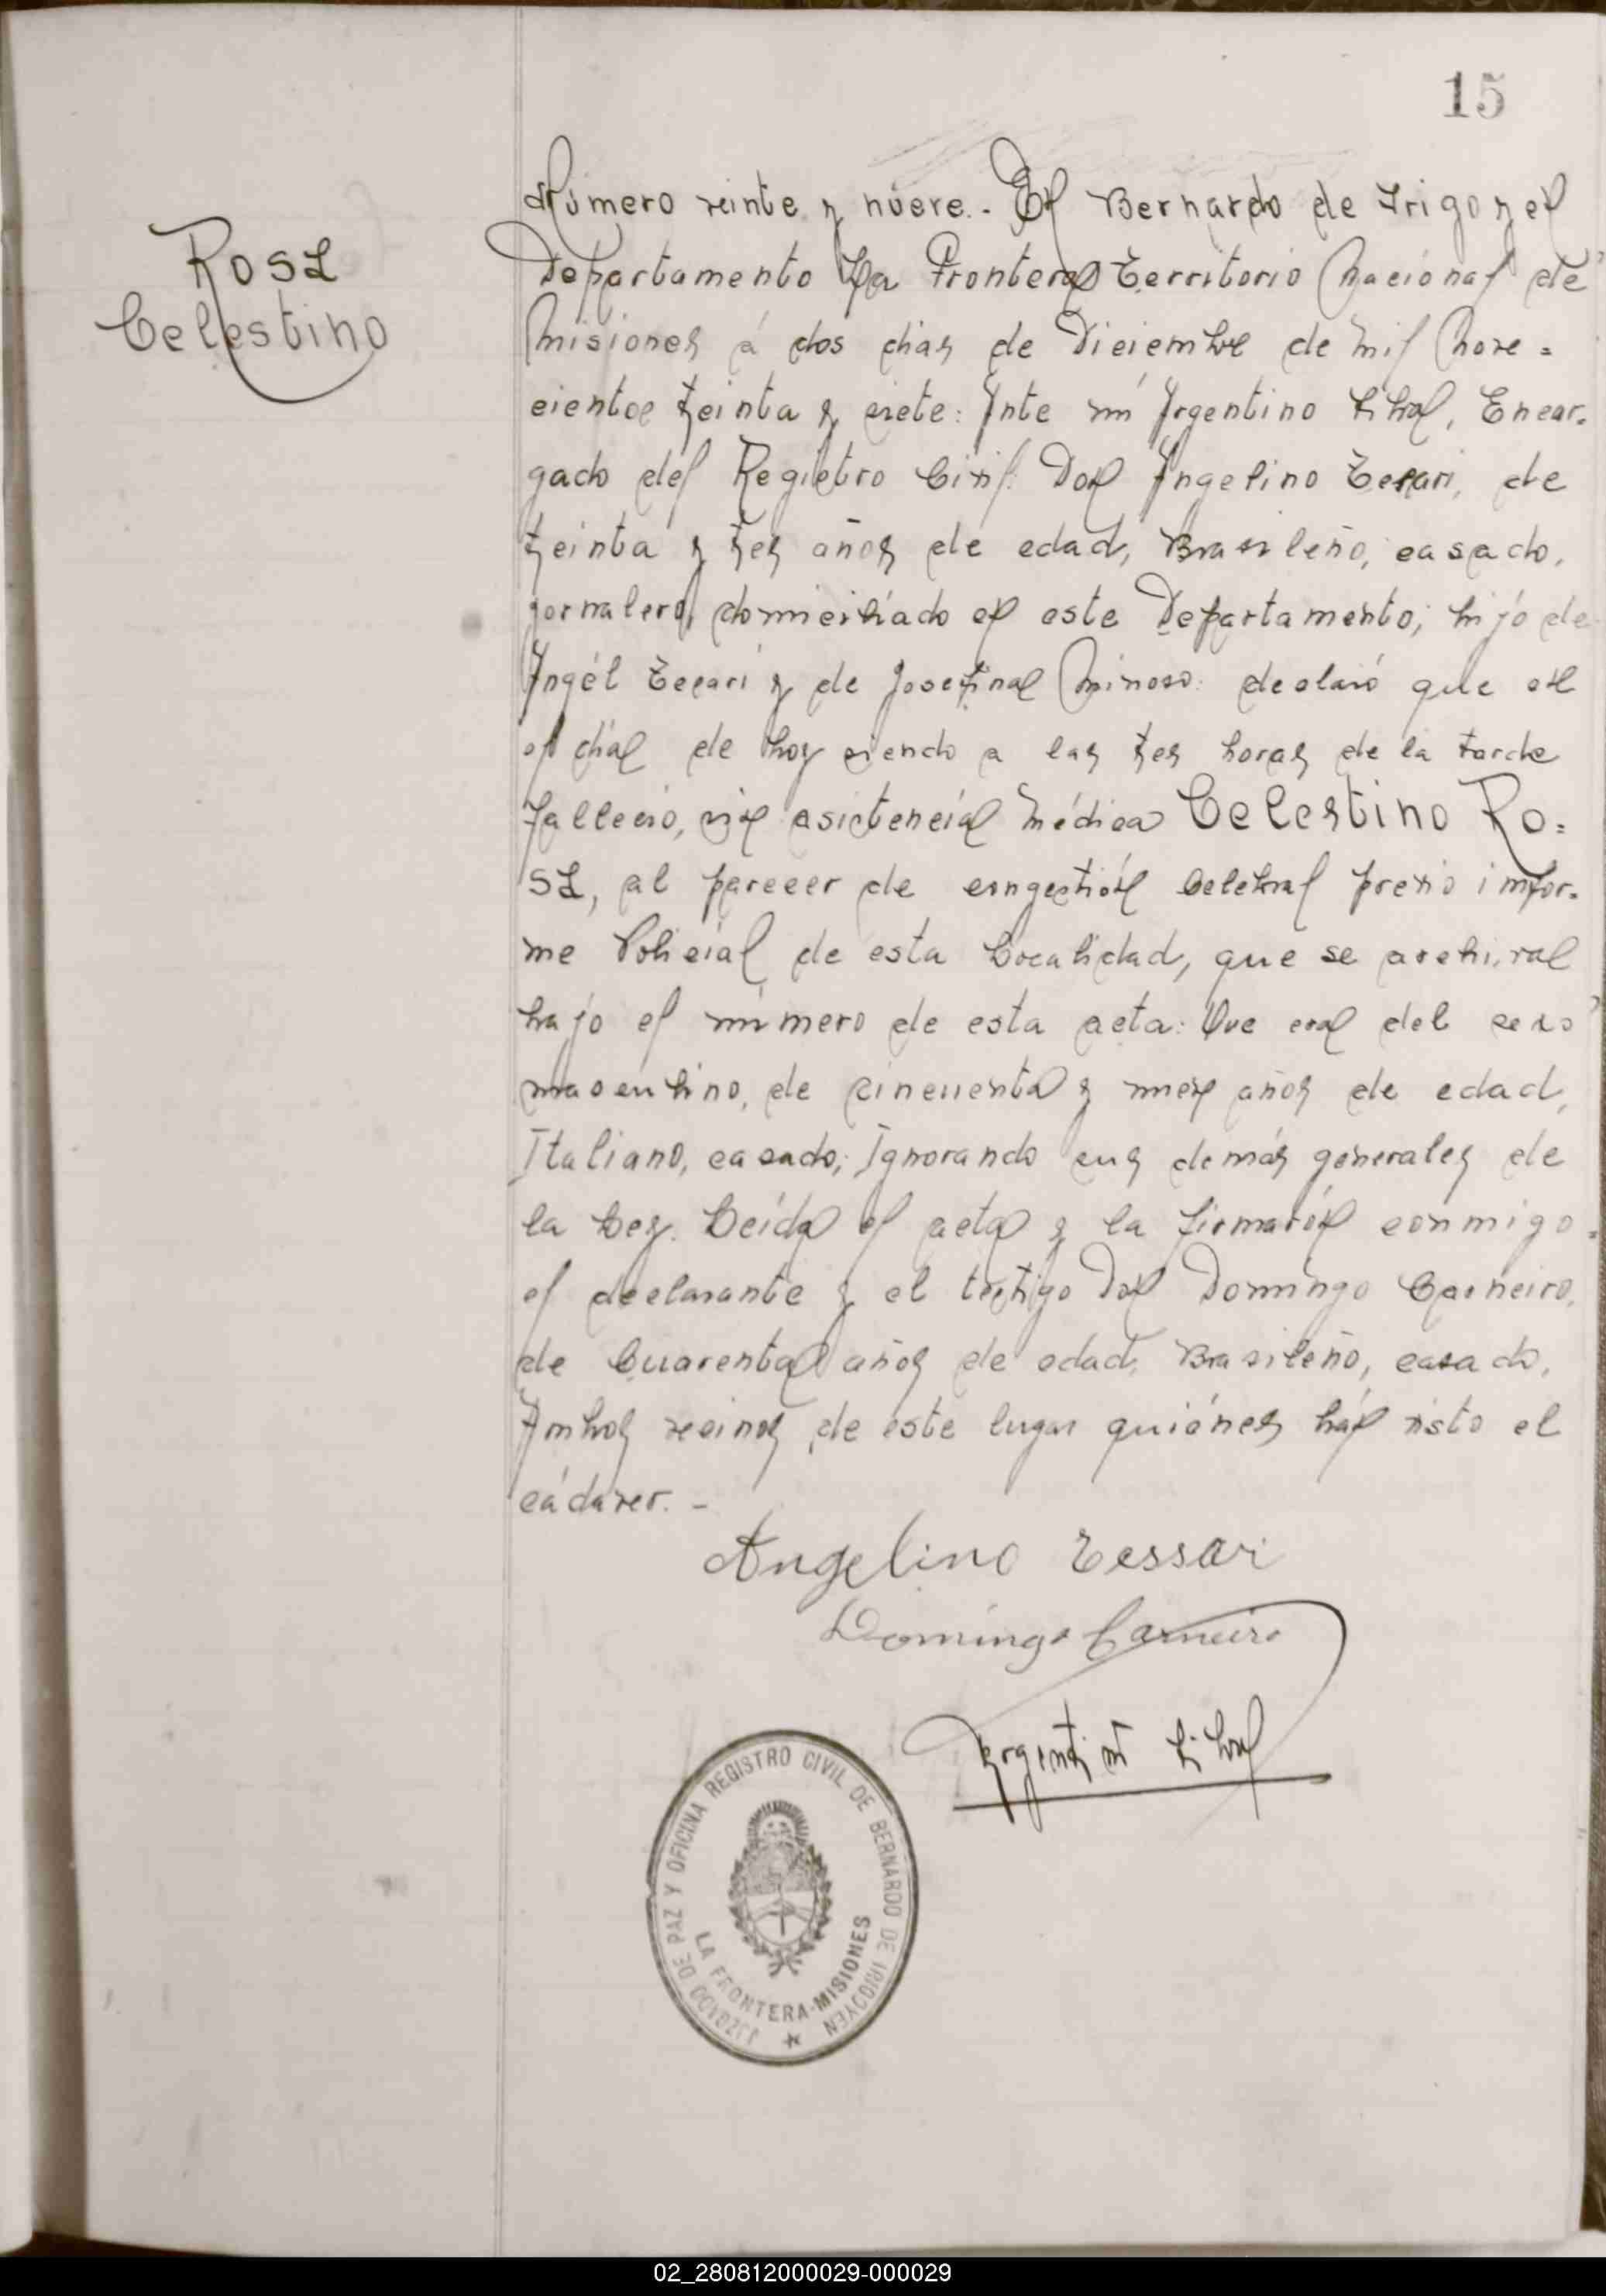 15
Rosa
Celestino
Número veinte y nueve.- En Bernardo de Irigoyen
Departamento La Frontera Territorio Nacional de
Misiones á dos dias de Diciembre de mil nove=
cientos treinta y siete: Ante mí Argentino Vibal, Encar-
gado del Registro Civil: Don Angelino Tesari, de
treinta y tres años de edad, Brasileño, casado,
jornalero, domiciliado en este Departamento; hijo de
Angél Tesari y de Josefina Minoso: declaró que en
el día de hoy siendo a las tres horas de la tarde
falleció, sin asistencia médica Celestino Ro=
sa, al parecer de congestión Celebral previo infor-
me Policial de esta Localidad, que se archiva
bajo el número de esta acta: Que era del sexo
masculino, de cincuenta y nueve años de edad,
Italiano, casado; Ignorando sus demás generales de
la Ley. Leída el acta y la firmarón conmigo
el declarante y el testigo Don Domingo Carneiro,
de Cuarenta años de edad, Brasileño, casado,
Ambos vecinos de este lugar quiénes hán visto el
cádaver.-
Angelino Tessari
Domingo Carneiro
Argentino
JUZGADO DE PAZ Y OFICINA REGISTRO CIVIL DE BERNARDO DE IRIGOYEN
LA FRONTERA-MISIONES
02_280812000029-000029